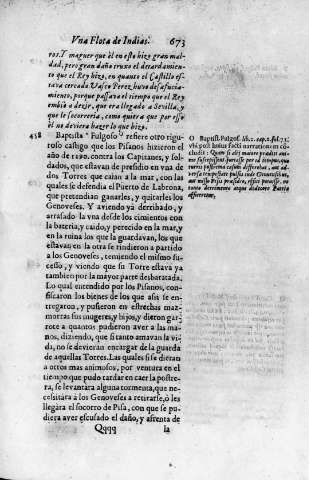 Vna Flota de Indias. 673
ros. Y maguer que èl en esto hizo gran mal-
dad, pero gran daño truxo el detardamien-
to que el Rey hizo, en quanto el Castillo es-
tava cercado Vasco Perez, huvo desafucia-
miento, porque passava el tiempo que el Rey
embiò a dezir, que era llegado a Sevilla, y
que le socorreria, como quiera que por esso
èl no deviera hazer lo que hizo.
438 Baptista Fulgoso refiere otro rigu-
roso castigo que los Pisanos hizieron el
año de 1290. contra los Capitanes, y sol-
dados, que estavan de presidio en vna de
dos Torres que caìan a la mar, con las
quales se defendia el Puerto de Labrona,
que pretendian ganarles, y quitarles los
Genoveses. Y aviendo ya derribado, y
arrasado la vna desde los cimientos con
la bateria, y caìdo, y perecido en la mar, y
en la ruina los que la guardavan, los que
estavan en la otra se rindieron a partido
a los Genoveses, temiendo el mismo su-
cesso, y viendo que su Torre estava ya
tambien por la mayor parte desbaratada.
Lo qual entendido por los Pisanos, con-
fiscaron los bienes de los que assi se en-
tregaron, y pusieron en estrechas maz-
morras sus mugeres, y hijos, y dieron gar-
rote a quantos pudieron aver a las ma-
nos, diziendo, que si tanto amavan la vi-
da, no se devieran encargar de la guarda
de aquellas Torres. Las quales si se dieran
a otros mas animosos, por ventura en el
tiempo que pudo tardar en caer la postre-
ra, se levantàra alguna tormenta, que ne-
cessitàra à los Genoveses a retirarse, ò les
llegàra el socorro de Pisa, con que se pu-
diera aver escusado el daño, y afrenta de
Qqqq la
O Baptist. Fulgos. lib. 2. cap. 2. fol. 73.
vbi post huius facti narrationem con-
cludit: Quam si alij maiore præditi ani-